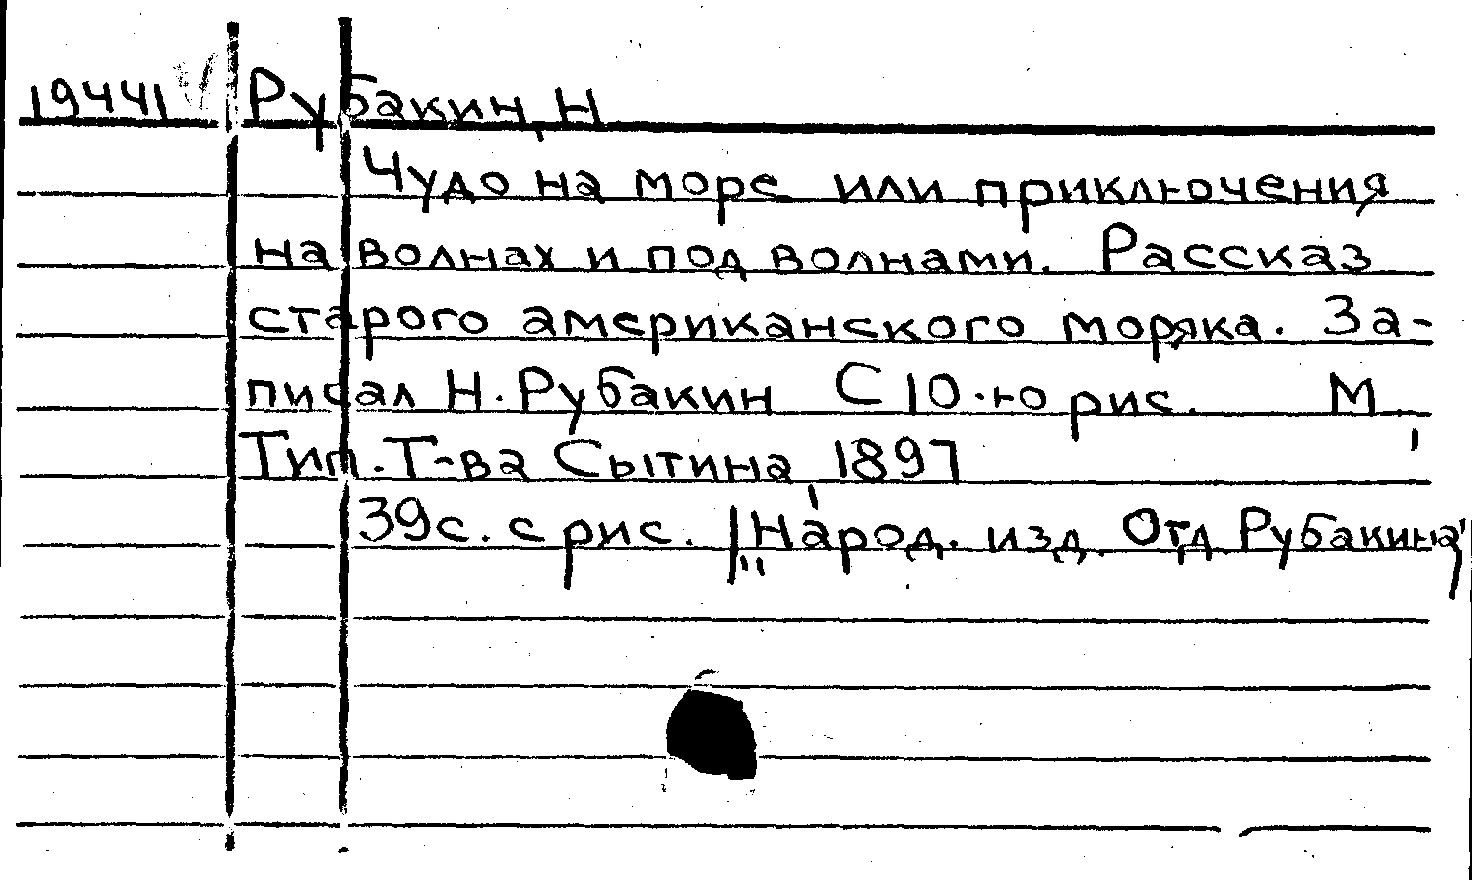 19441 Рубакин, Н
Чудо на море или приключения
на волнах и под волнами. Рассказ
старого американского моряка. За-
писал Н. Рубакин С 10-ю рис. М.,
Тип. Т-ва Сытина, 1897
39с. с рис. /"Народ. изд. Отд. Рубакина"/